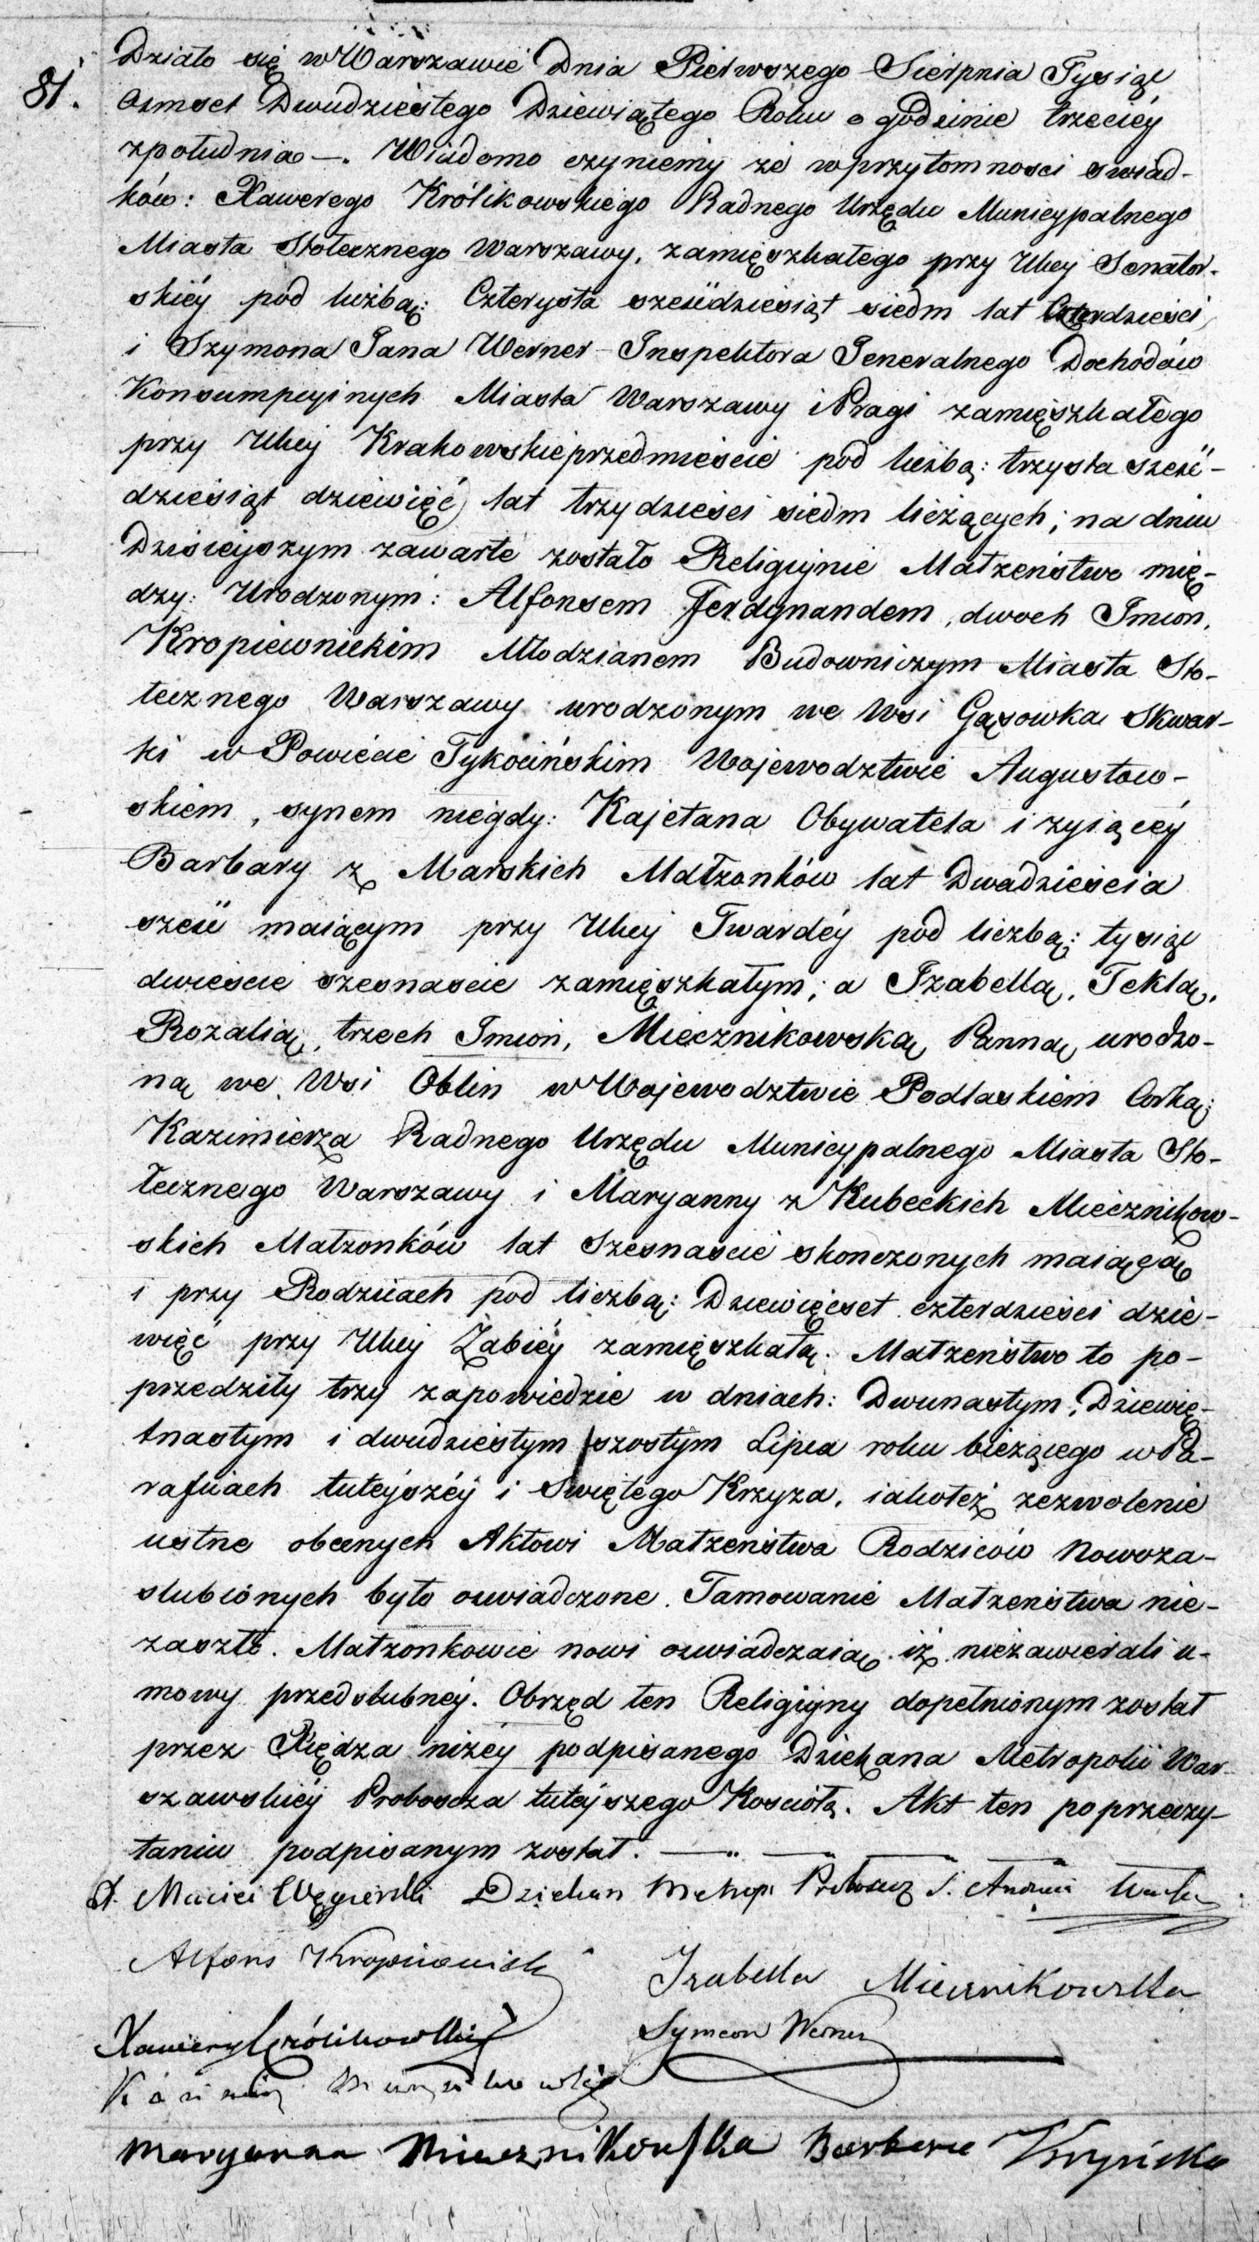 81.
Działo się w Warszawie Dnia Pierwszego Sierpnia Tysiąc
Osmset Dwudziestego Dziewiątego Roku o godzinie trzeciéy
zpołudnia —. Wiadomo czyniemy że wprzytomnosci swiad-
ków: Xawerego Królikowskiego Radnego Urzędu Municypalnego
Miasta Stołecznego Warszawy, zamięszkałego przy Ulicy Senator-
skiéy pod liczbą: Czterysta sześćdziesiąt siedm lat Czterdzieści,
i Szymona Jana Werner Inspektora Jeneralnego Dochodów
Konsumpcyinych Miasta Warszawy i Pragi zamięszkałego
przy Ulicy Krakowskieprzedmieście pod liczbą: trzysta sześć-
dziesiąt dziewięć, lat trzydzieści siedm liczących; na dniu
Dzisieyszym zawarte zostało Religiynie Małżeństwo mię-
dzy: Urodzonym: Alfonsem Ferdynandem, dwoch Imion,
Kropiewnickim Młodzianem Budowniczym Miasta Sto-
łecznego Warszawy urodzonym we Wsi Gąsowka Skwar-
ki w Powiecie Tykocińskim Wojewodztwie Augustow-
skiem, synem niegdy: Kajetana Obywatela i zyiącéy
Barbary z Marskich Małżonków lat Dwadzieścia
sześć maiącym przy Ulicy Twardéy pod liczbą: tysiąc
dwieście szesnascie zamięszkałym; a Izabellą, Teklą,
Rozalią, trzech Imion, Miecznikowską Panną urodzo-
ną we Wsi Oblin w Wojewodztwie Podlaskiem Corką:
Kazimierza Radnego Urzędu Municypalnego Miasta Sto-
łecznego Warszawy i Maryanny z Kubeckich Miecznikow-
skich Małzonków lat szesnascie skonczonych maiącą
i przy Rodzicach pod liczbą: Dziewięcset czterdzieści dzie-
więć przy Ulicy Żabiéy zamięszkałą. Małżeństwo to po-
przedziły trzy zapowiedzie w dniach: Dwunastym, Dziewię-
tnastym i dwudziestym szostym Lipca roku bieżącego w Pa-
rafiach tuteyszéy i Swiętego Krzyza, iakoteż zezwolenie
ustne obecnych Aktowi Małżeństwa Rodziców Nowoza-
slubionych było oswiadczone. Tamowanie Małżeństwa nie-
zaszło. Małzonkowie nowi oswiadczaią iż niezawierali u-
mowy przedslubnéy. Obrzęd ten Religiyny dopełnionym został
przez Xiędza niżéy podpisanego Dziekana Metropolii War-
szawskiéy Proboscza tuteyszego Koscioła. Akt ten poprzeczy-
taniu podpisanym został. —
X. Maciei Węgierski Dziekan Metrop. Proboscz S. Andrzeia
Alfons Kropiewnicki
Izabella Miecznikowska
Xawery Królikowski
Symeon Werner
Kazimierz Miecznikowski
Maryanna Miecznikowska Barbara Krynicka